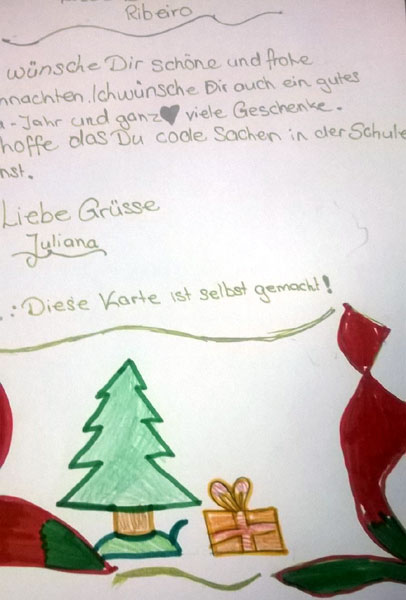 Ribeiro
wünsche Dir schöne und frohe
nachten. Ich wünsche Dir auch ein gutes
-Jahr und ganz viele Geschenke.
hoffe das Du coole Sachen in der Schule
nst.
Liebe Grüsse
Juliana
.: Diese Karte ist selbst gemacht!